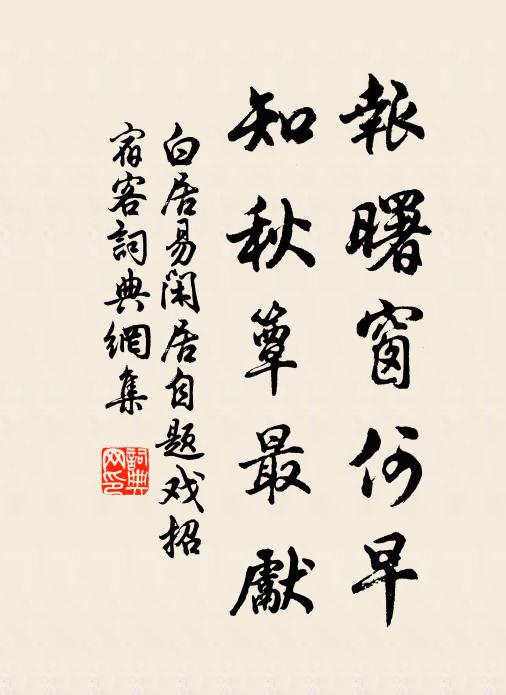 報曙窗何早
知秋簟最獻
白居易闲居自题戏招
宿客詞典網集
詞典
网印